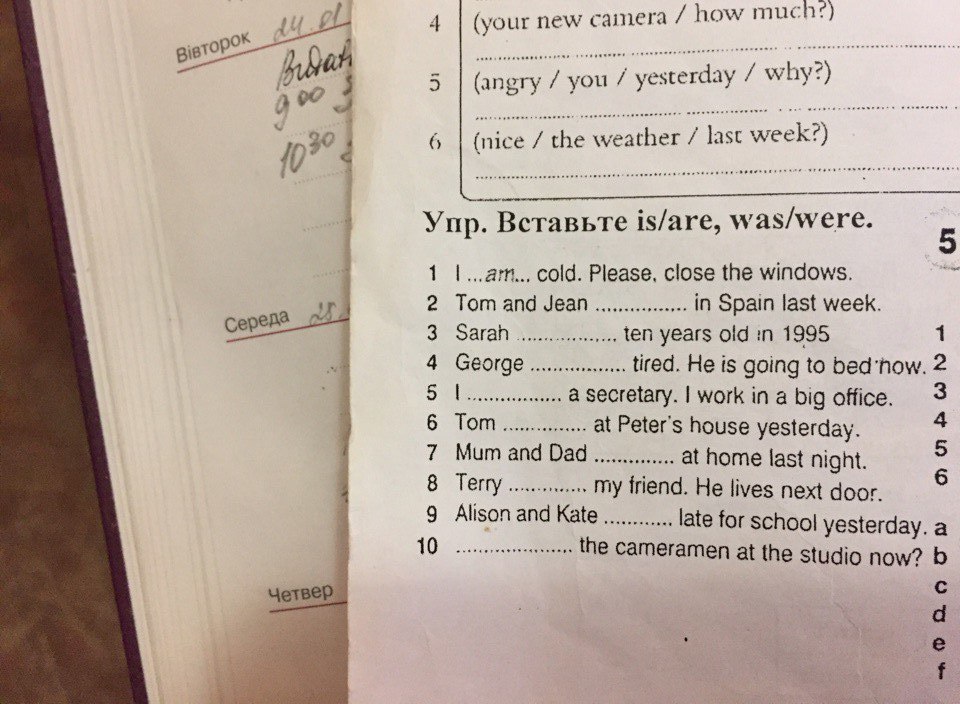 Вівторок 24.01
9 00
10 30
Середа
Четвер
4 (your new camera / how much?)
5 (angry / you / yesterday / why?)
6 (nice / the weather / last week?)
Упр. Вставьте is/are, was/were.
1 I ...am... cold. Please, close the windows.
2 Tom and Jean ................ in Spain last week.
3 Sarah ................. ten years old in 1995
4 George ................. tired. He is going to bed now.
5 I ................. a secretary. I work in a big office.
6 Tom ............... at Peter's house yesterday.
7 Mum and Dad .............. at home last night.
8 Terry .............. my friend. He lives next door.
9 Alison and Kate ............ late for school yesterday.
10 ..................... the cameramen at the studio now?
5
1
2
3
4
5
6
a
b
c
d
e
f